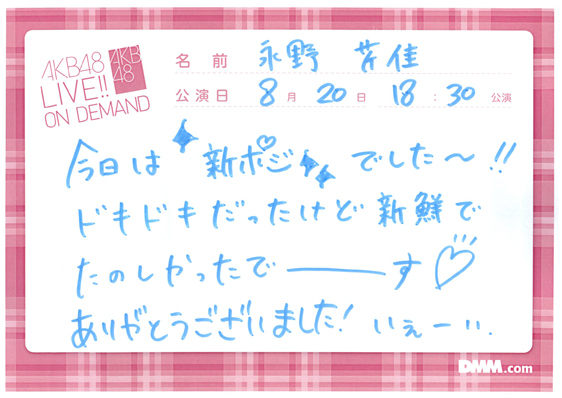 AKB48
LIVE!!
ON DEMAND
AKB
48
名前 永野 芹佳
公演日 8月 20日 18:30 公演
今日は 新ポジ でした〜!!
ドキドキだったけど新鮮で
たのしかったで———す♡
ありがとうございました! いぇーい..
DMM.com